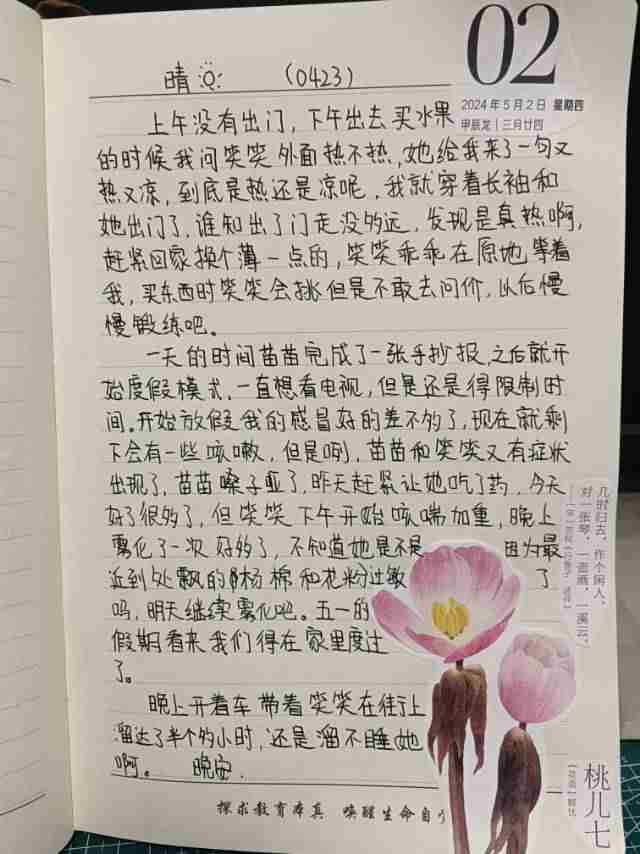 02
2024年5月2日 星期四
甲辰龙|三月廿四
晴 (0423)
上午没有出门,下午出去买水果
的时候我问笑笑外面热不热,她给我来了一句又
热又凉,到底是热还是凉呢,我就穿着长袖和
她出门了,谁知出了门走没多远,发现是真热啊,
赶紧回家换个薄一点的,笑笑乖乖在原地等着
我,买东西时笑笑会挑但是不敢去问价,以后慢
慢锻练吧。
一天的时间苗苗完成了一张手抄报,之后就开
始度假模式,一直想看电视,但是还是得限制时
间。开始放假我的感冒好的差不多了,现在就剩
下会有一些咳嗽,但是咧,苗苗和笑笑又有症状
出现了,苗苗嗓子哑了,昨天赶紧让她吃了药,今天
好了很多了,但笑笑下午开始咳喘加重,晚上
雾化了一次好多了,不知道她是不是 因为最
近到处飘的杨棉和花粉过敏 了
吗,明天继续雾化吧。五一的
假期看来我们得在家里度过
了。
晚上开着车带着笑笑在街上
溜达了半个多小时,还是溜不睡她
啊。 晚安.
几时归去,作个闲人。
对一张琴,一壶酒,一溪云。
桃儿七
探求教育本真 唤醒生命自